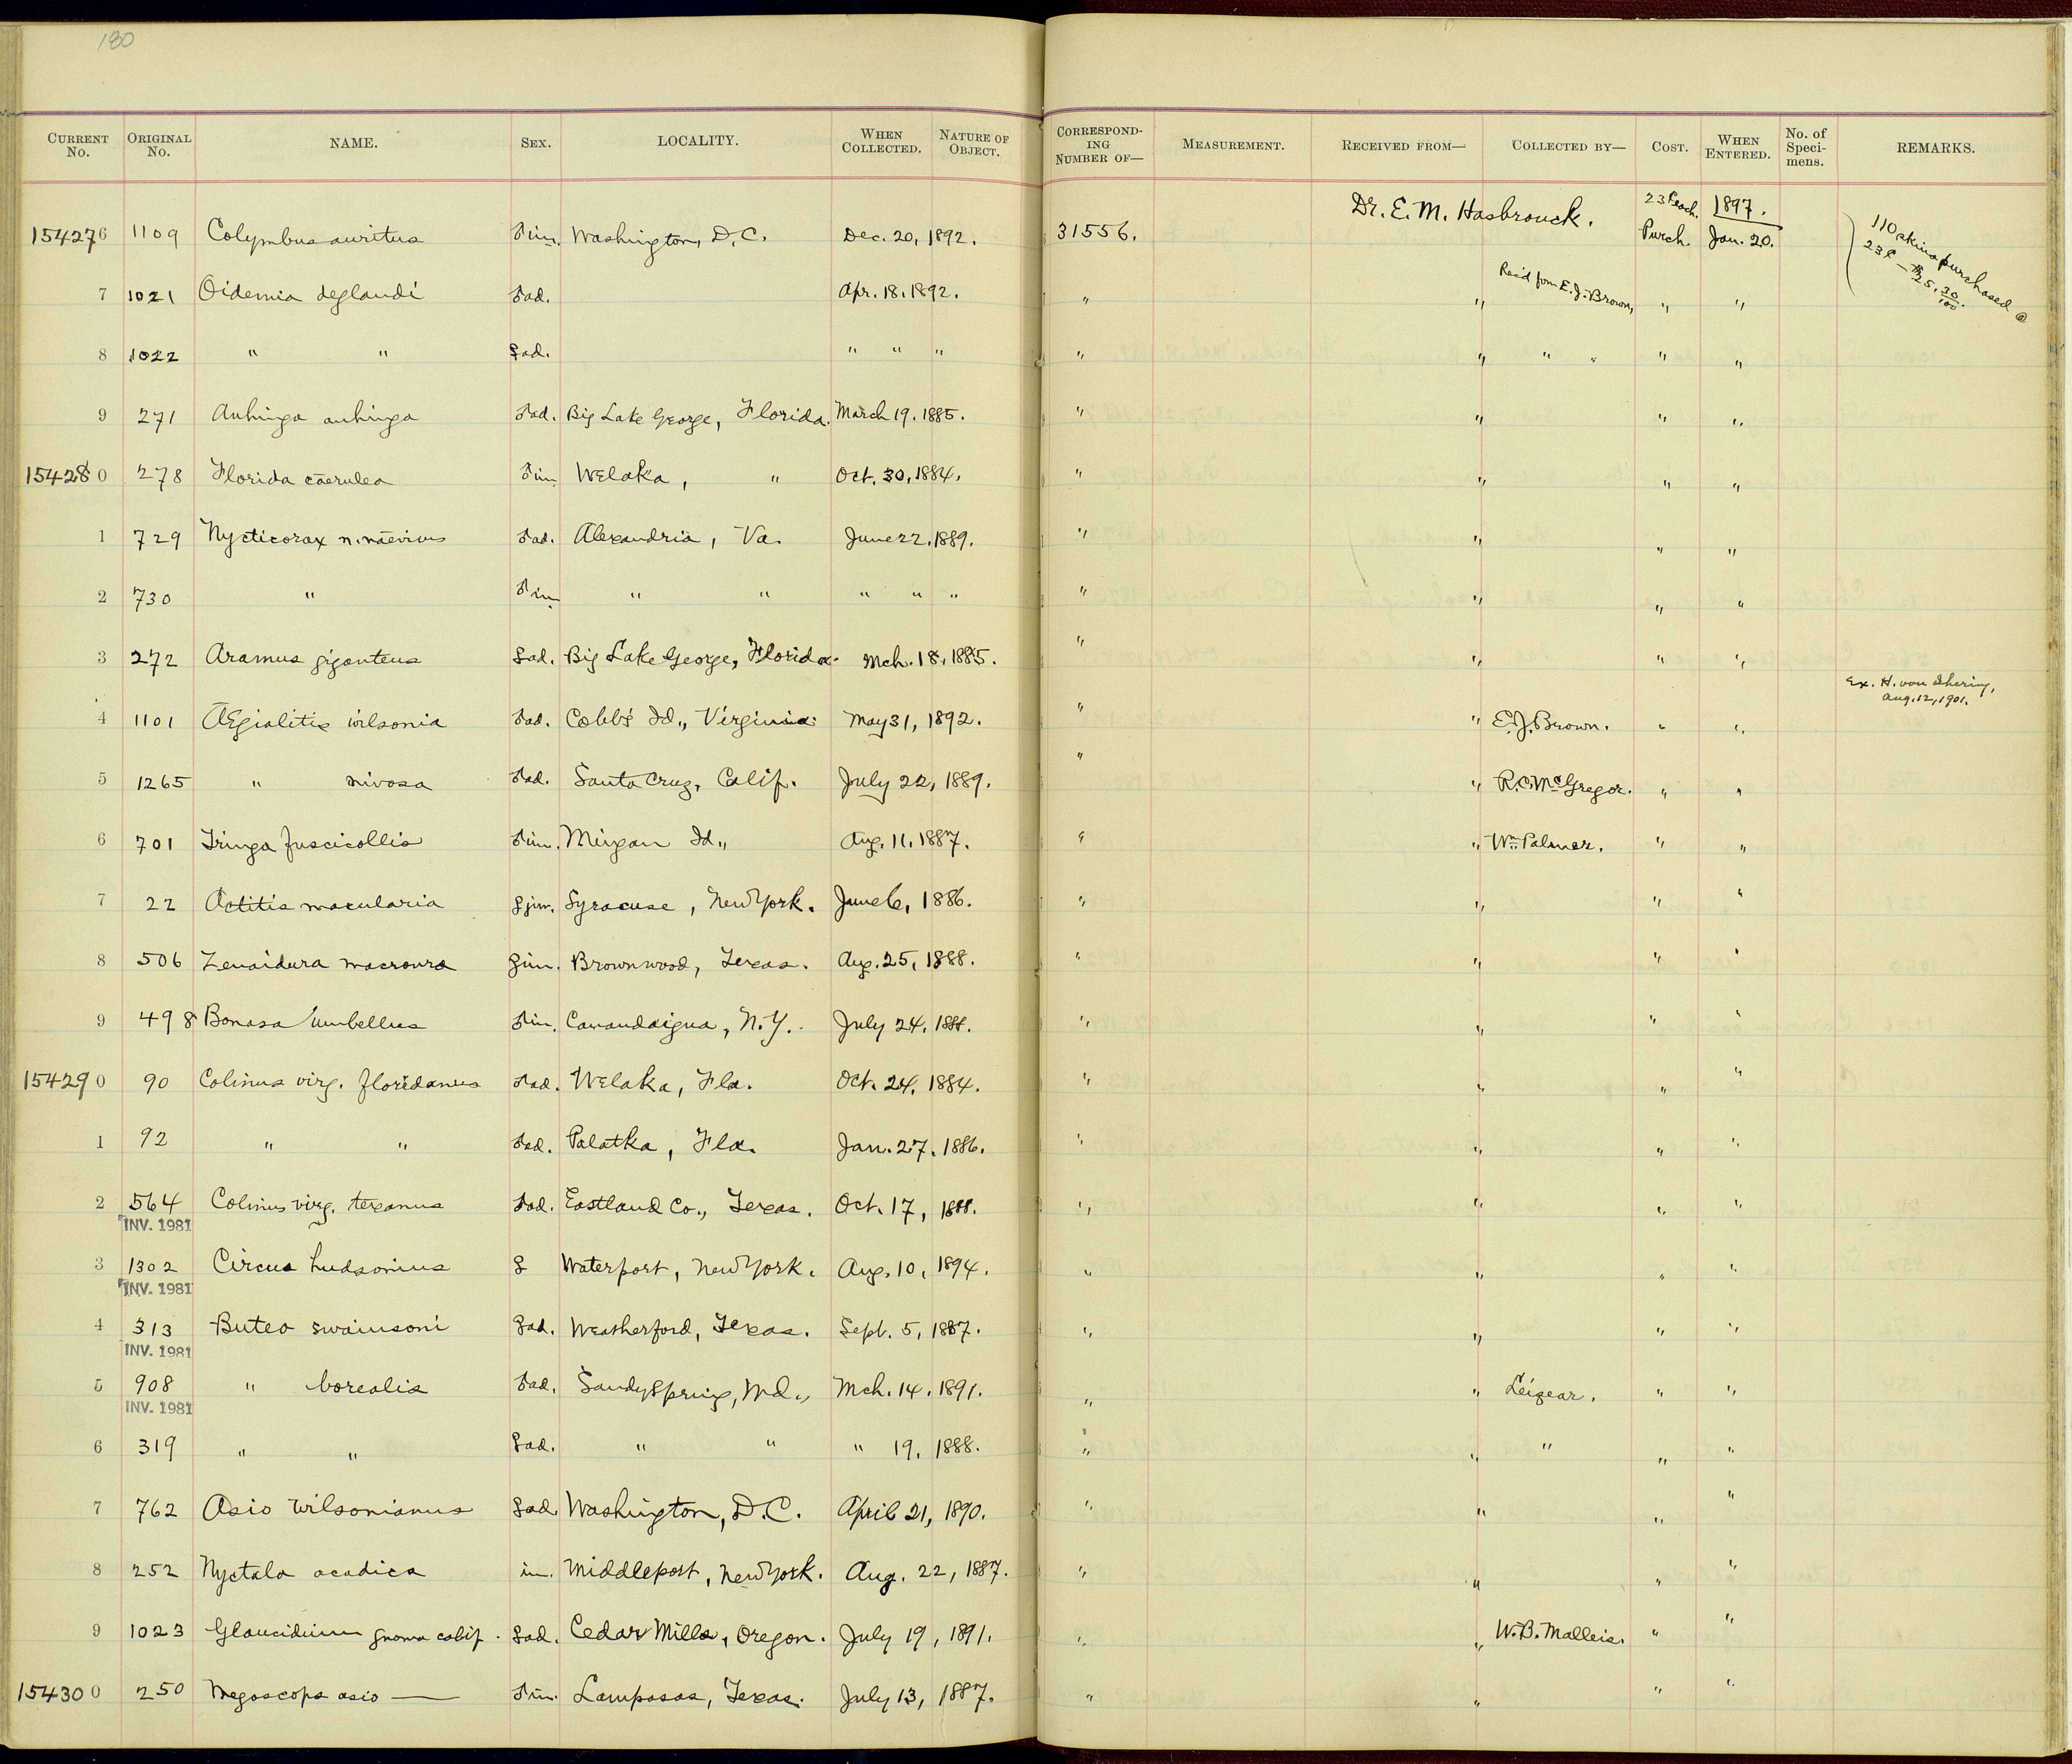 180
CURRENT No. ORIGINAL No. NAME. SEX. LOCALITY. WHEN COLLECTED. NATURE OF OBJECT. CORRESPONDING NUMBER OF— MEASUREMENT. RECEIVED FROM— COLLECTED BY— COST. WHEN ENTERED. No. of Specimens. REMARKS.
154276 1109 Colymbus auritus ♂im. Washington, D.C. Dec. 20, 1892. 31556. Dr. E. M. Hasbrouck. 23¢ each. Purch. 1897. Jan. 20. 110 skins purchased @ 23¢ — $25.30/100.
7 1021 Oidemia deglandi ♂ad. Apr. 18. 1892. " " Rec'd from E. J. Brown, " "
8 1022 " " ♀ad. " " " " " " " " "
9 271 Anhinga anhinga ♂ad. Big Lake George, Florida. March 19. 1885. " " " "
154280 278 Florida cærulea ♂im Welaka, " Oct. 30, 1884. " " " "
1 729 Nycticorax n. nævius ♂ad. Alexandria, Va. June 22. 1889. " " " "
2 730 " ♂im " " " " " " " " "
3 272 Aramus giganteus ♀ad. Big Lake George, Florida. Mch. 18, 1885. " " " "
4 1101 Ægialitis wilsonia ♂ad. Cobb's Id., Virginia. May 31, 1892. " " E. J. Brown. " " Ex. H. von Ihering, Aug. 12, 1901.
5 1265 " nivosa ♂ad. Santa Cruz, Calif. July 22, 1889. " " R. C. McGregor. " "
6 701 Tringa fuscicollis ♂im. Mingan Id., Aug. 11. 1887. " " Wm. Palmer. " "
7 22 Actitis macularia ♀jun. Syracuse, New York. June 6, 1886. " " " "
8 506 Zenaidura macroura ♀im. Brownwood, Texas. Aug. 25, 1888. " " " "
9 498 Bonasa umbellus ♂im. Canandaigua, N.Y. July 24. 1888. " " " "
154290 90 Colinus virg. floridanus ♂ad. Welaka, Fla. Oct. 24, 1884. " " " "
1 92 " " ♂ad. Palatka, Fla. Jan. 27. 1886. " " " "
2 564 Colinus virg. texanus ♂ad. Eastland Co., Texas. Oct. 17, 1888. " " " "
INV. 1981
3 1302 Circus hudsonius ♀ Waterport, New York. Aug. 10, 1894. " " " "
INV. 1981
4 313 Buteo swainsoni ♀ad. Weatherford, Texas. Sept. 5, 1887. " " " "
INV. 1981
5 908 " borealis ♂ad. Sandy Spring, Md., Mch. 14. 1891. " " Leizear. " "
INV. 1981
6 319 " " ♀ad. " " " 19, 1888. " " " " "
7 762 Asio wilsonianus ♀ad Washington, D.C. April 21, 1890. " " " "
8 252 Nyctala acadica im. Middleport, New York. Aug. 22, 1887. " " " "
9 1023 Glaucidium gnoma calif. ♀ad. Cedar Mills, Oregon. July 19, 1891. " " W. B. Malleis. " "
154300 250 Megascops asio — ♂im. Lampasas, Texas. July 13, 1887. " " " "